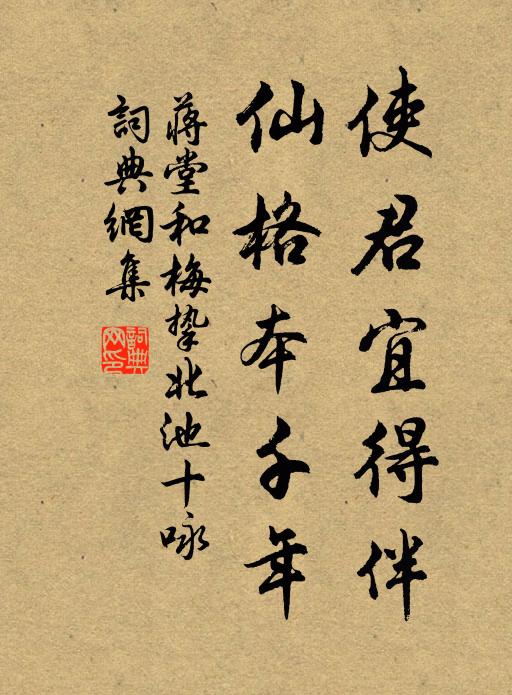 使君宜得伴
仙格本千年
蔣堂和梅摯北池十咏
詞典網集
詞典網印